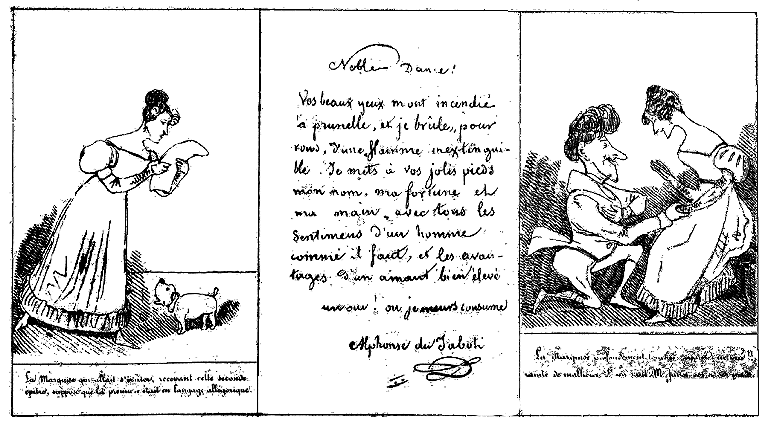 Noble Dame!
Vos beaux yeux m'ont incendié
la prunelle, et je brûle, pour
vous, d'une flamme inextingui-
ble. Je mets à vos jolis pieds
mon nom, ma fortune et
ma main, avec tous les
Sentimens d'un homme
comme il faut, et les avan-
tages d'un amant bien élevé
un oui! ou je meurs consumé
Alphonse du Jabot
La Marquise qui allait s'irriter, recevant cette seconde
épitre, suppose que la première était en langage allégorique.
La Marquise profondément